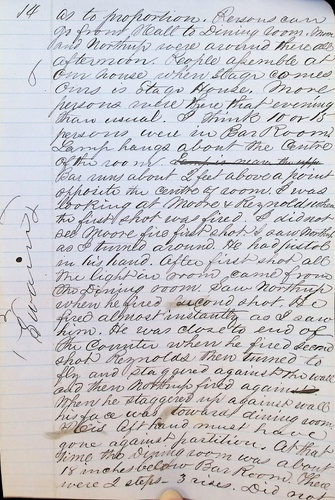 14 as to proportion. Persons can
go from Hall to Dining Room. Moore
and Northup were around there all
afternoon. People assemble at
our house when Stage comes
Ours is Stage House. More
persons were there that evening
than usual. I think 10 or 15
persons were in Bar Room.
Lamp hangs about the Centre
of the room. Lamp is near the upp
Bar runs about 2 feet above a point
opposite the Centre of room. I was
looking at Moore & Reynolds when
the first shot was fired. I did not
see Moore fire first shot I saw Northup
as I turned around. He had pistol
in his hand. After first shot all
the light in room, came from
the Dining room. Saw Northup
when he fired second shot. He
fired almost instantly as I saw
him. He was close to end of
the Counter when he fired second
shot Reynolds then turned to
fly and staggered against the wall
and then Northup fired against
When he staggered up against wall
his face was toward dining room
His left hand must have
gone against partition. At that
time the Dining room was about
18 inches below Bar Room. There
were 2 steps 3 rises. Did not
Swain's